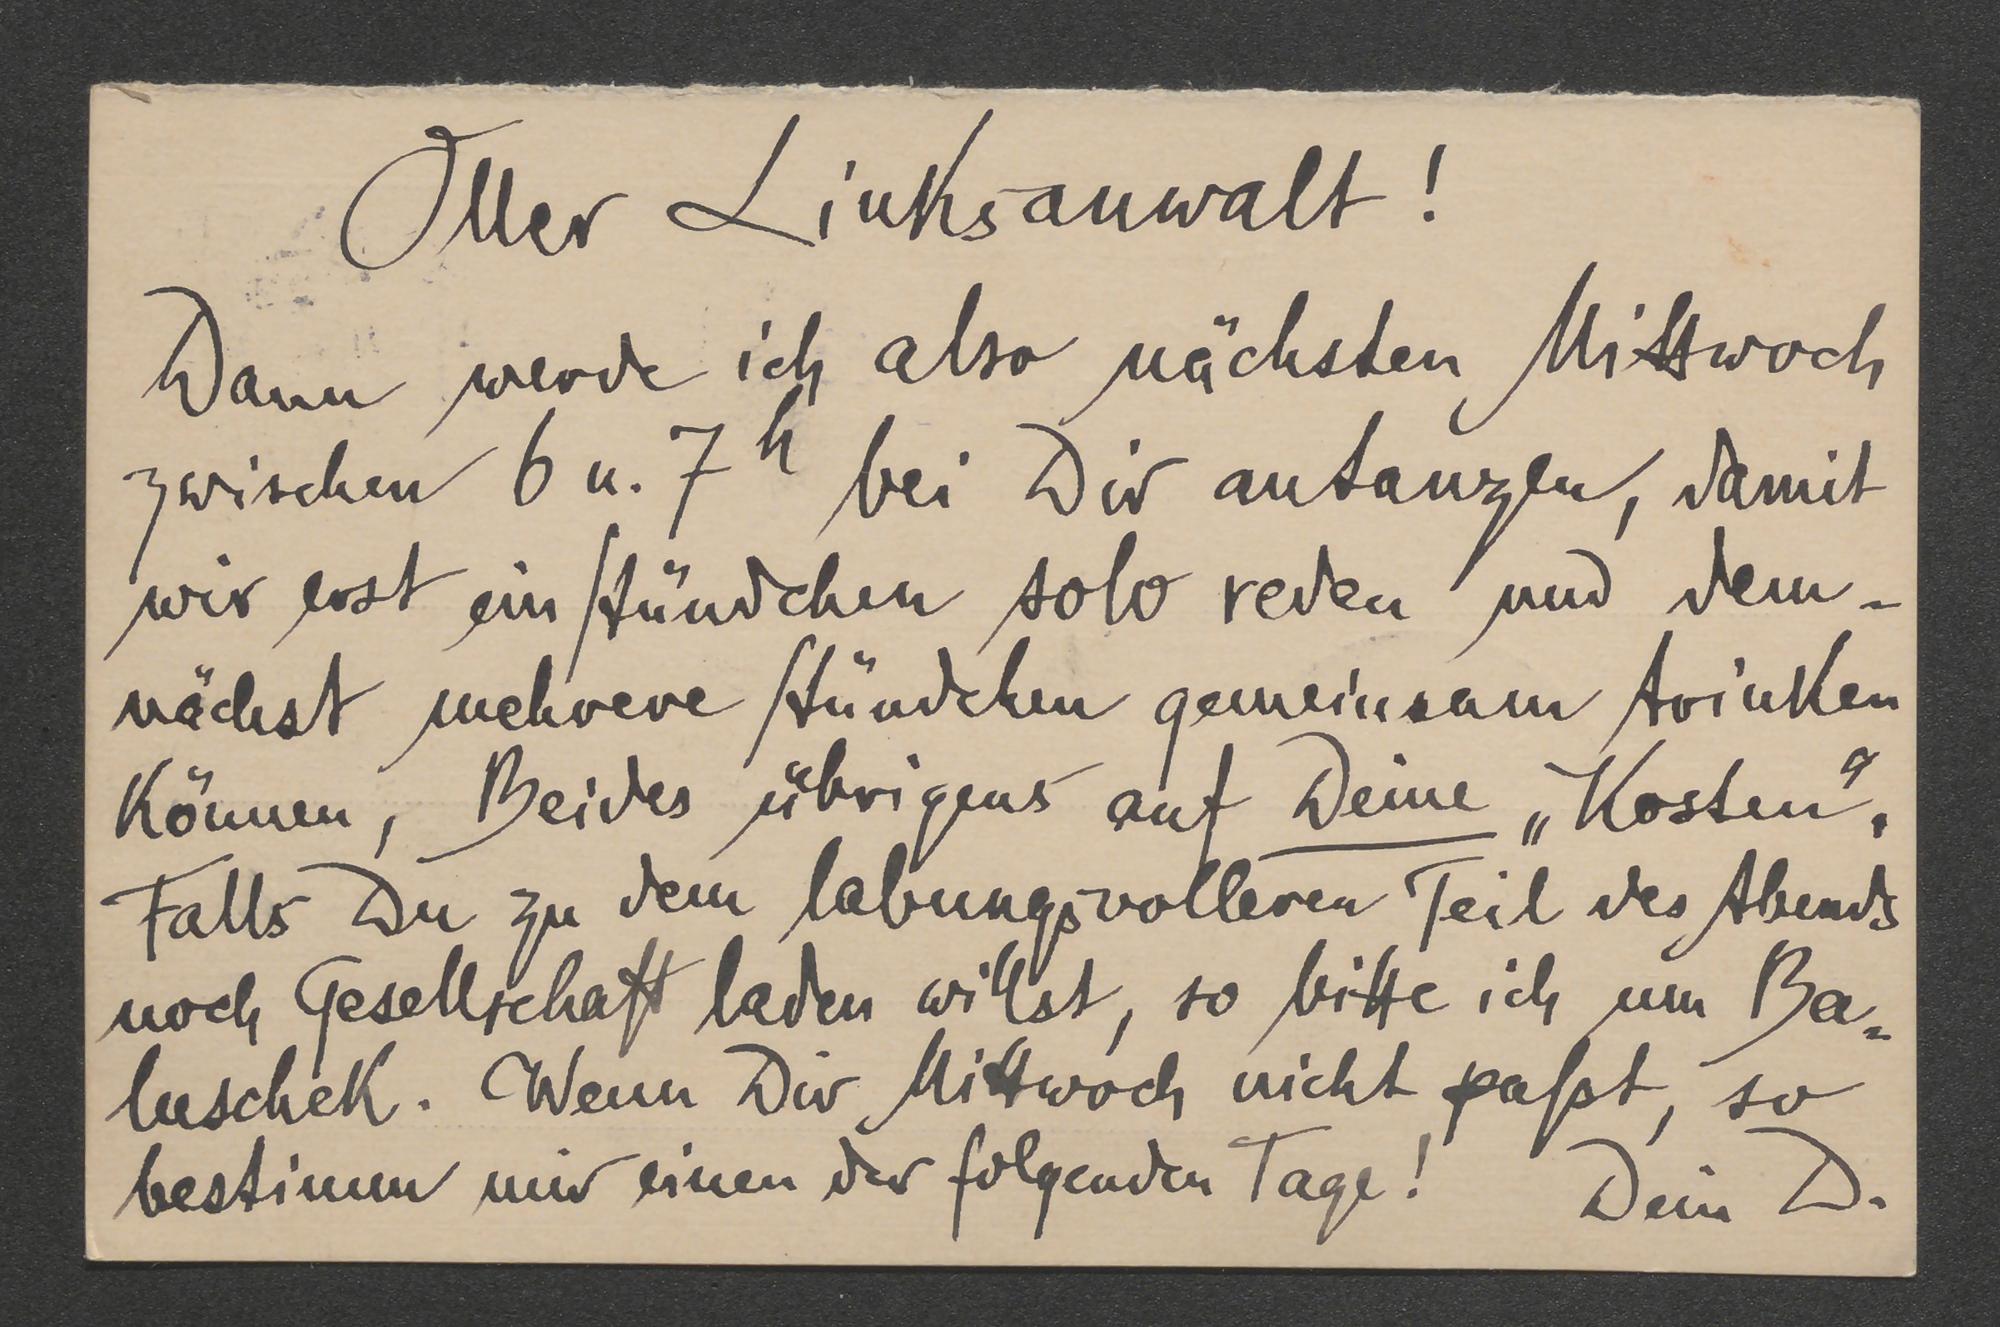 Oller Linksanwalt!
Dann werde ich also nächsten Mittwoch
zwischen 6 u. 7h bei Dir antanzen, damit
wir erst ein Stündchen solo reden und dem-
nächst mehrere Stündchen gemeinsam trinken
können, Beides übrigens auf Deine „Kosten“.
Falls Du zu dem labungsvolleren Teil des Abends
noch Gesellschaft laden willst, so bitte ich um Ba-
luschek. Wenn Dir Mittwoch nicht paßt, so
bestimm mir einen der folgenden Tage! Dein D.